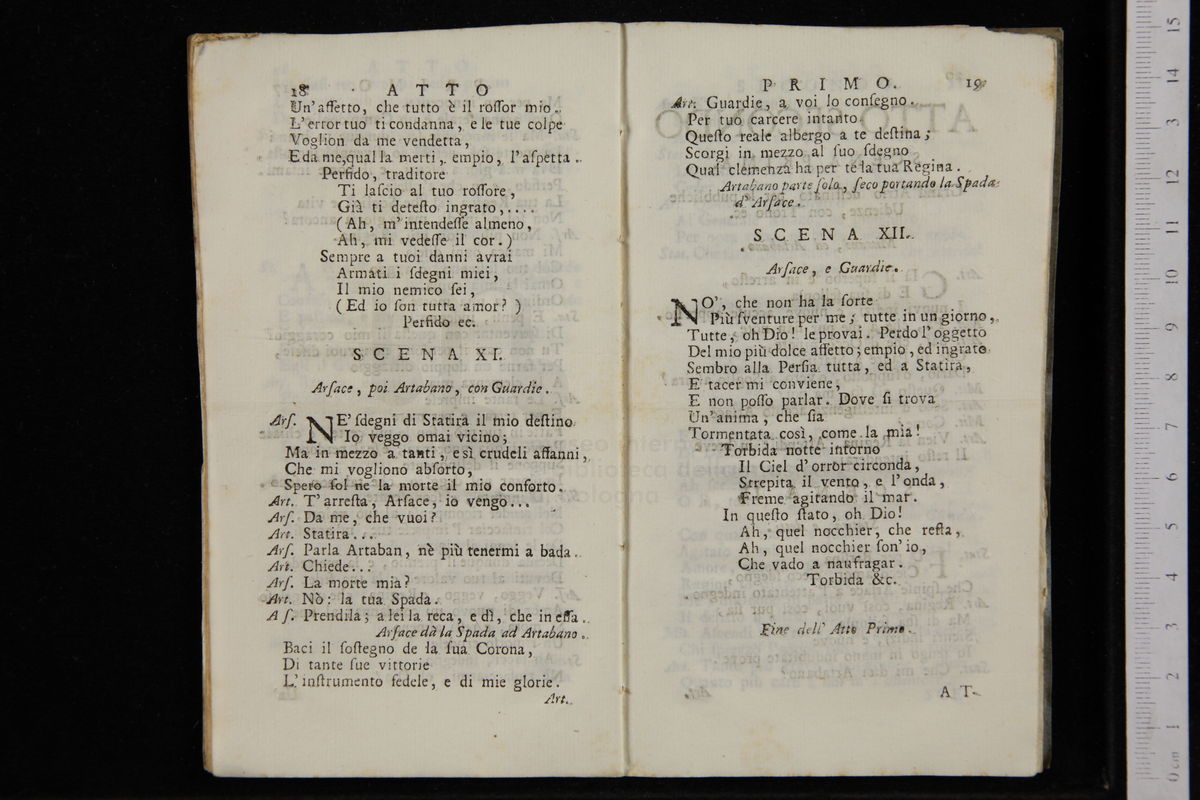 18 ATTO
Un'affetto, che tutto è il roſſor mio.
L'error tuo ti condanna, e le tue colpe
Voglion da me vendetta,
E da me, qual la merti, empio, l'aſpetta.
Perfido, traditore
Ti laſcio al tuo roſſore,
Già ti deteſto ingrato,....
(Ah, m'intendeſſe almeno,
Ah, mi vedeſſe il cor.)
Sempre a tuoi danni avrai
Armati i ſdegni miei,
Il mio nemico ſei,
(Ed io ſon tutta amor?)
Perfido ec.
SCENA XI.
Arſace, poi Artabano, con Guardie.
Arſ. NE' ſdegni di Statira il mio deſtino
Io veggo omai vicino;
Ma in mezzo a tanti, e sì crudeli affanni,
Che mi vogliono abſorto,
Spero ſol ne la morte il mio conforto.
Art. T'arreſta, Arſace, io vengo...
Arſ. Da me, che vuoi?
Art. Statira...
Arſ. Parla Artaban, nè più tenermi a bada.
Art. Chiede...
Arſ. La morte mia?
Art. Nò: la tua Spada.
A ſ. Prendila; a lei la reca, e dì, che in eſſa.
Arſace dà la Spada ad Artabano.
Baci il ſoſtegno de la ſua Corona,
Di tante ſue vittorie
L'inſtrumento fedele, e di mie glorie.
Art.
PRIMO. 19
Art. Guardie, a voi lo conſegno.
Per tuo carcere intanto
Queſto reale albergo a te deſtina;
Scorgi in mezzo al ſuo ſdegno
Qual clemenza ha per te la tua Regina.
Artabano parte ſolo, ſeco portando la Spada
d'Arſace.
SCENA XII.
Arſace, e Guardie.
NO', che non ha la ſorte
Più ſventure per me; tutte in un giorno,
Tutte, oh Dio! le provai. Perdo l'oggetto
Del mio più dolce affetto; empio, ed ingrato
Sembro alla Perſia tutta, ed a Statira,
E tacer mi conviene,
E non poſſo parlar. Dove ſi trova
Un'anima, che ſia
Tormentata così, come la mia!
Torbida notte intorno
Il Ciel d'orror circonda,
Strepita il vento, e l'onda,
Freme agitando il mar.
In queſto ſtato, oh Dio!
Ah, quel nocchier, che reſta,
Ah, quel nocchier ſon'io,
Che vado a naufragar.
Torbida &c.
Fine dell' Atto Primo.
AT-